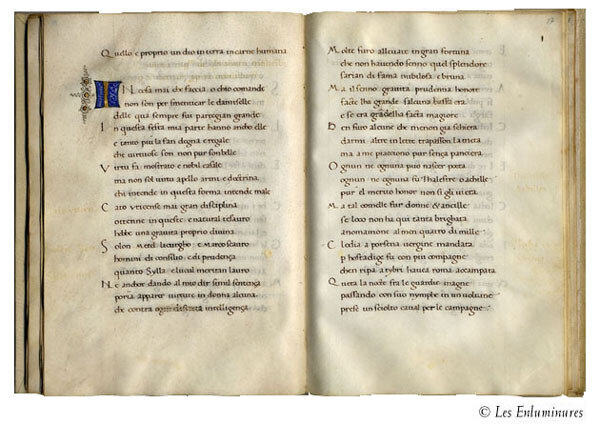 Quello e proprio un dio in terra in carne humana
IN cosa mai che faccia o chio comande
non son per smenticar le damiselle
delle qua sempre fu parte gian grande
In questa festa mia parte hanno anche elle
e tanto piu la fan degna e regale
che virtuose son non pur son belle
Virtu fa mostrato e nobel casale
ma non sol virtu apello arme e doctrina
chi intende in questa forma intende male
Cato uticense mai gran disciplina
ottenne in queste e natural tesauro
hebbe una gravita proprio divina
Solon Metel licurgho e Marco scauro
homini di consilio e di prudenza
quanto Sylla el iuval meritan lauro
Ne anchor dando al mio dir simil sentenza
poria apparer virture in donna alcuna
che contra ogni intelligenza
17
Molte furo allevate in gran fortuna
che non havendo senno quel splendore
sarian di fama nubilosa e bruna
Ma il senno gravita prudenza honore
facte lha grande salcuna bassa era
e se era grande lha facta magiore
Ben furo alcune che menon gia schiera
darmi altre in letre trapasson la meta
ma a me piacciono pur senza pantera
Ognun ne ognuna puo nascer poeta
ognun ne ognuna su Thalestre o achille
pur el mervo honor non si gli vieta
Ma tal com elle fur donne &ancille
se loco non ha qui tanta brighata
anomamone al men quatro di mille
Cloelia a porsena vergine mandata
p hostadige fu con piu compagne
chen ripa a tybri havea roma accampata
Questa la nocte fra le guardie magne
passando con suo nymphe in un volume
prese un sciolto caval per le campagne
© Les Enluminures